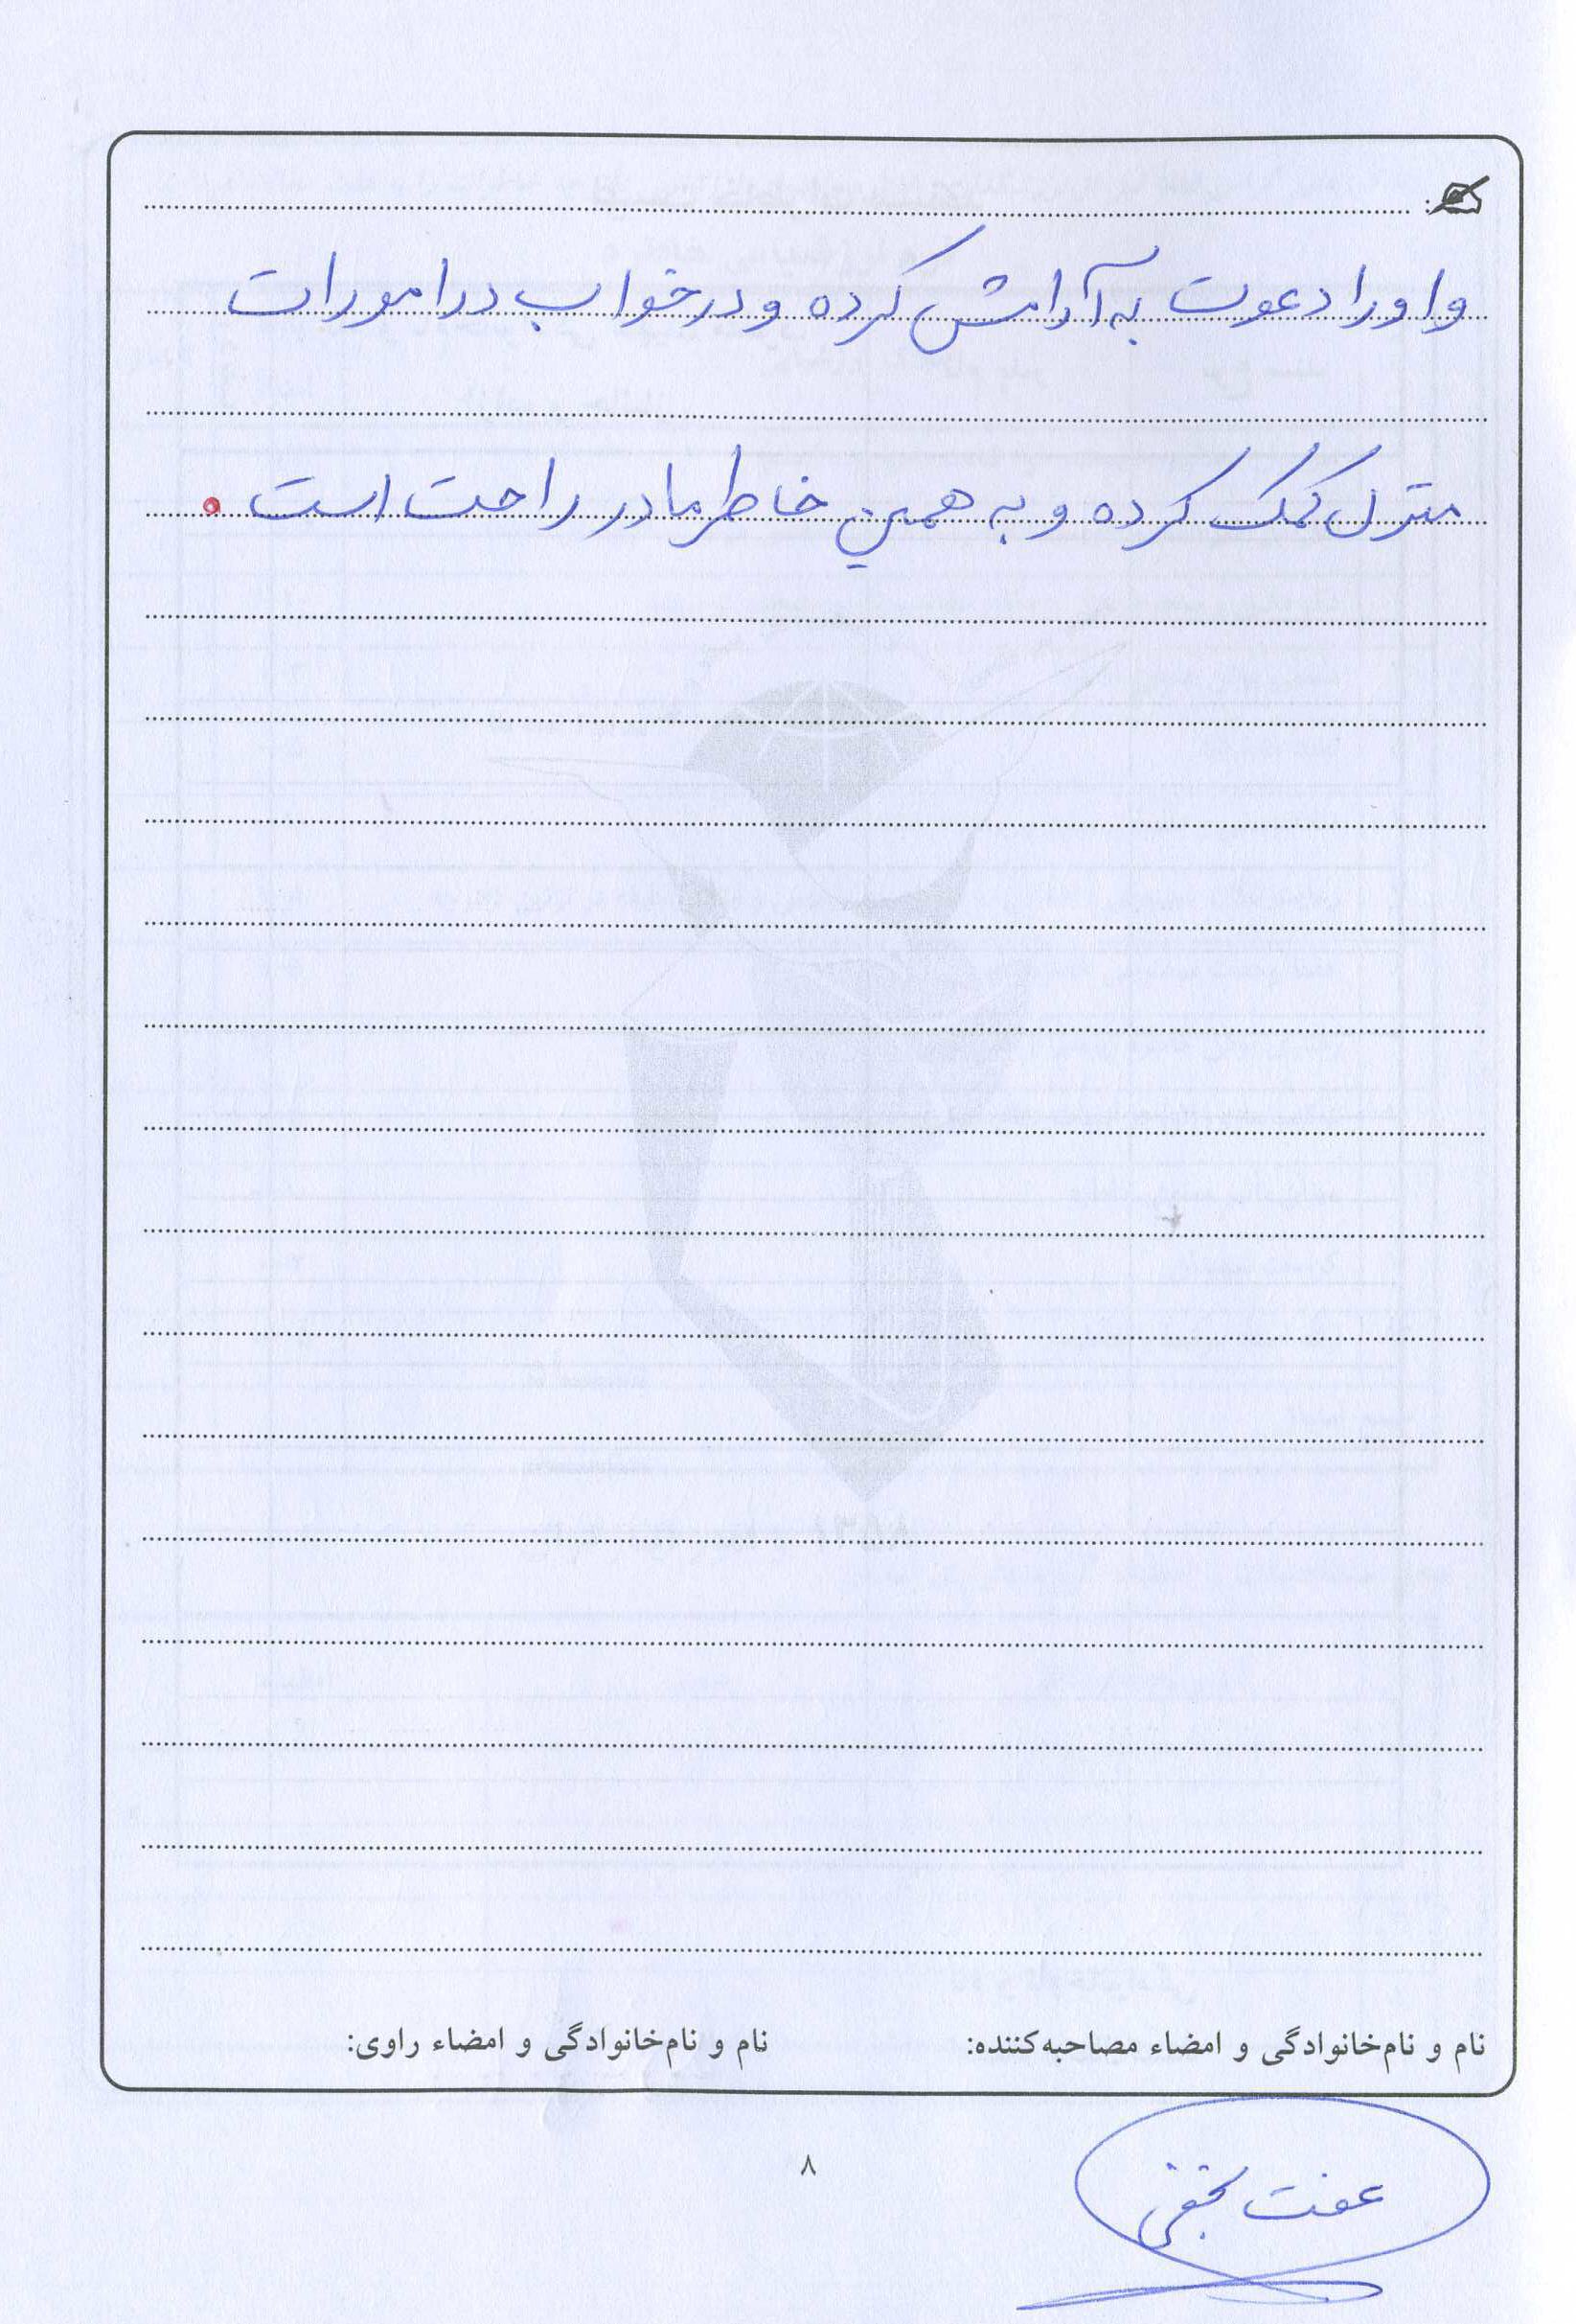 و او را دعوت به آرامش کرده و در خواب در امورات
منزل کمک کرده و به همین خاطر مادر راحت است .
نام و نام‌خانوادگی و امضاء مصاحبه‌کننده: نام و نام‌خانوادگی و امضاء راوی:
۸
عفت